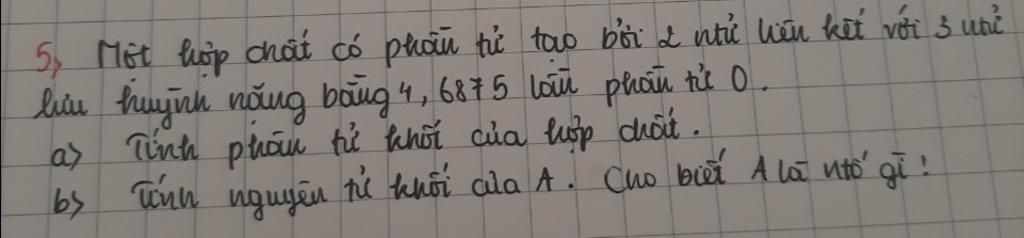 5, Một hợp chất có phân tử tạo bởi 2 ntử liên kết với 3 ntử
lưu huỳnh nặng bằng 4,6875 lần phân tử O.
a) Tính phân tử khối của hợp chất.
b) Tính nguyên tử khối của A. Cho biết A là ntố gì!